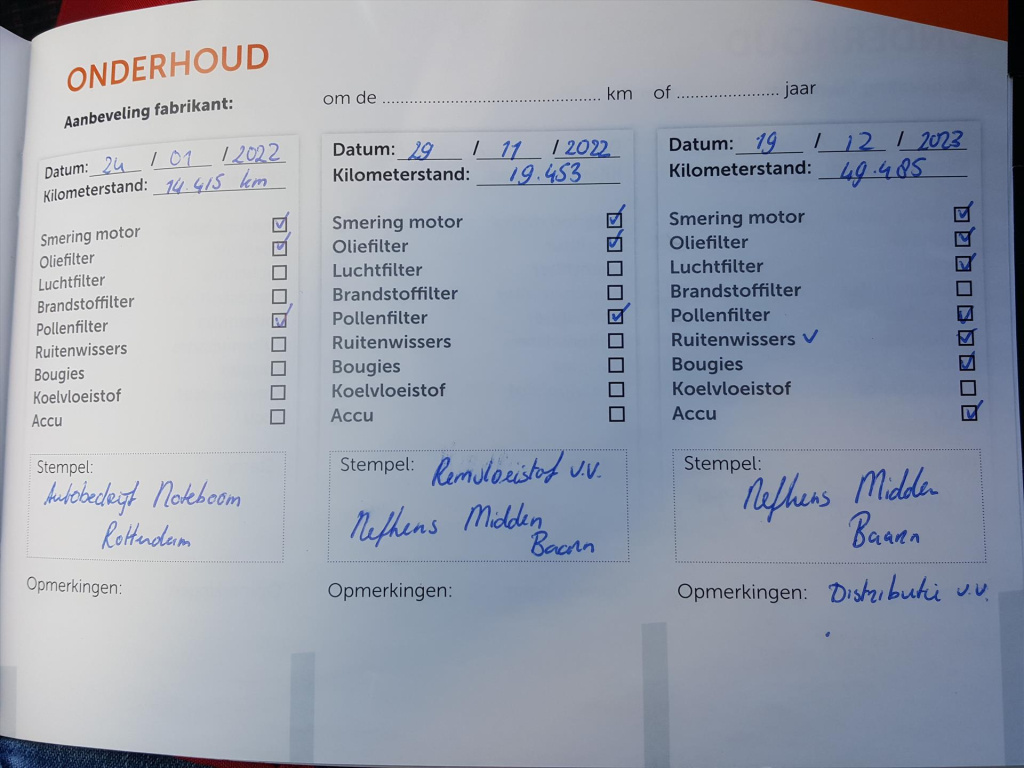 ONDERHOUD
Aanbeveling fabrikant:
om de ........................................... km of .................... jaar
Datum: 24 / 01 / 2022
Kilometerstand: 14.415 km
Smering motor
Oliefilter
Luchtfilter
Brandstoffilter
Pollenfilter
Ruitenwissers
Bougies
Koelvloeistof
Accu
Stempel:
Autobedrijf Noteboom
Rotterdam
Opmerkingen:
Datum: 29 / 11 / 2022
Kilometerstand: 19.453
Smering motor
Oliefilter
Luchtfilter
Brandstoffilter
Pollenfilter
Ruitenwissers
Bougies
Koelvloeistof
Accu
Stempel: Remvloeistof v.v.
Nefkens Midden
Baarn
Opmerkingen:
Datum: 19 / 12 / 2023
Kilometerstand: 49.485
Smering motor
Oliefilter
Luchtfilter
Brandstoffilter
Pollenfilter
Ruitenwissers
Bougies
Koelvloeistof
Accu
Stempel:
Nefkens Midden
Baarn
Opmerkingen: Distributie v.v.